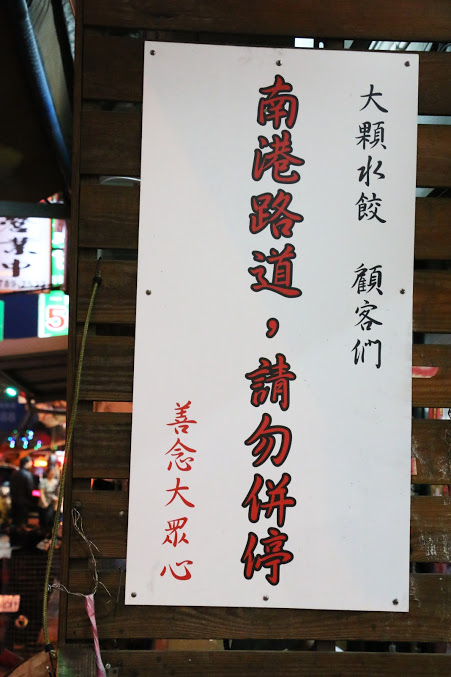 大顆水餃 顧客們
南港路道，請勿併停
善念大眾心
5